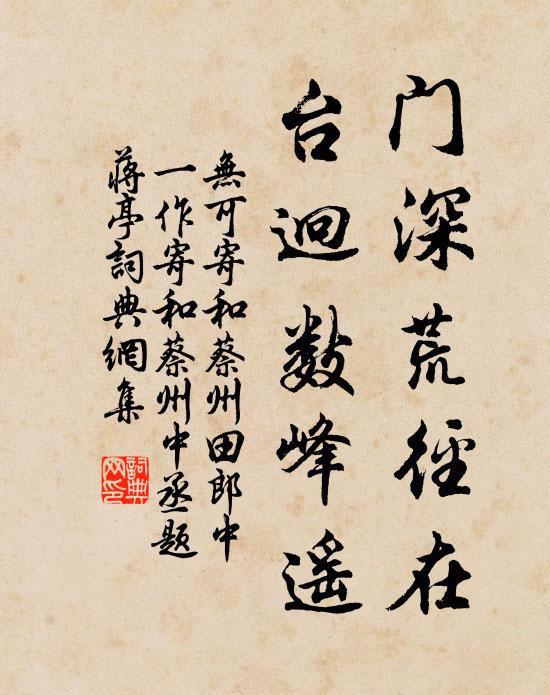 门深荒径在
台迥数峰遥
無可寄和蔡州田郎中
一作寄和蔡州中丞题
蒋亭詞典網集
詞典
网印